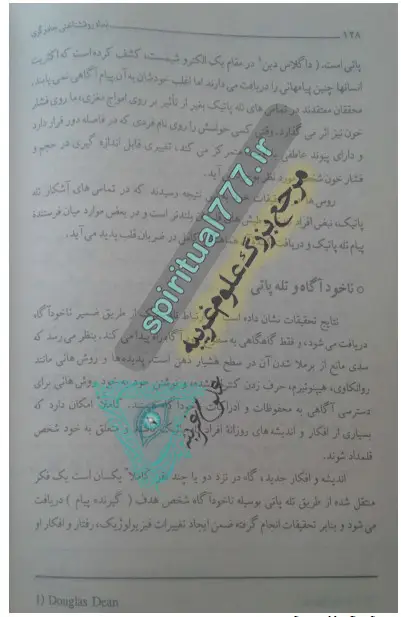 ۱۲۸
پاتی است. ( داگلاس دین¹ در مقام یک الکترو شیمیست، کشف کرده است که اکثریت
انسانها چنین پیامهائی را دریافت می دارند اما اغلب خودشان به آن پیام آگاهی نمی یابند.
محققان معتقدند در تماس های تله پاتیک بغیر از تأثیر بر روی امواج مغزی، ما روی فشار
خون نیز اثر می گذارد. وقتی کسی حواسش را روی نام فردی که در فاصله دور قرار دارد
و دارای پیوند عاطفی متمرکز می کند، تغییری قابل اندازه گیری در حجم و
فشار خون آید.
روس ها نتیجه رسیدند که در تماس های آشکار تله
پاتیک، نبض افراد بلندتر است و در بعضی موارد میان فرستنده
پیام تله پاتیک و کامل در ضربان قلب پدید می آید.
ناخودآگاه و تله پاتی
نتایج تحقیقات نشان داده است از طریق ضمیر ناخودآگاه
دریافت می شود، و فقط گاهگاهی به پیدا می کند. بنظر می رسد که
سدی مانع از برملا شدن آن در سطح هشیار ذهن است. پدیده ها و روش هائی مانند
روانکاوی، هیپنوتیزم، حرف زدن خود به خود روش هائی برای
دسترسی آگاهی به محفوظات و ادراکات هستند. کاملاً امکان دارد که
بسیاری از افکار و اندیشه های روزانهٔ افراد متعلق به خود شخص
قلمداد شوند.
اندیشه و افکار جدید، گاه در نزد دو یا چند نفر کاملاً یکسان است یک فکر
منتقل شده از طریق تله پاتی بوسیله ناخودآگاه شخص هدف ( گیرنده پیام ) دریافت
می شود و بنابر تحقیقات انجام گرفته ضمن ایجاد تغییرات فیزیولوژیک، رفتار و افکار او
1) Douglas Dean
spiritual777.ir
مرجع بزرگ علوم غریبه
علوم غریبه